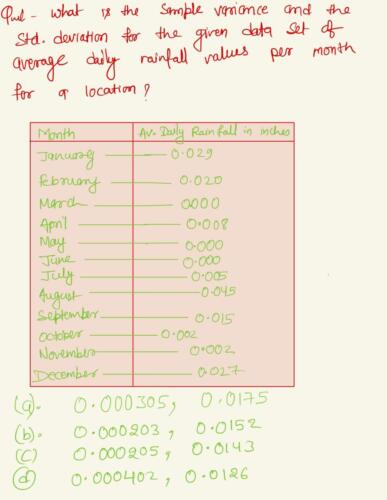 Que - What is the sample variance and the
Std. deviation for the given data set of
average daily rainfall values per month
for a location?
Month Av. Daily Rainfall in inches
January 0.029
February 0.020
March 0.000
April 0.008
May 0.000
June 0.000
July 0.005
August 0.045
September 0.015
October 0.002
November 0.002
December 0.027
(a). 0.000305, 0.0175
(b). 0.000203, 0.0152
(c) 0.000205, 0.0143
(d) 0.000402, 0.0126